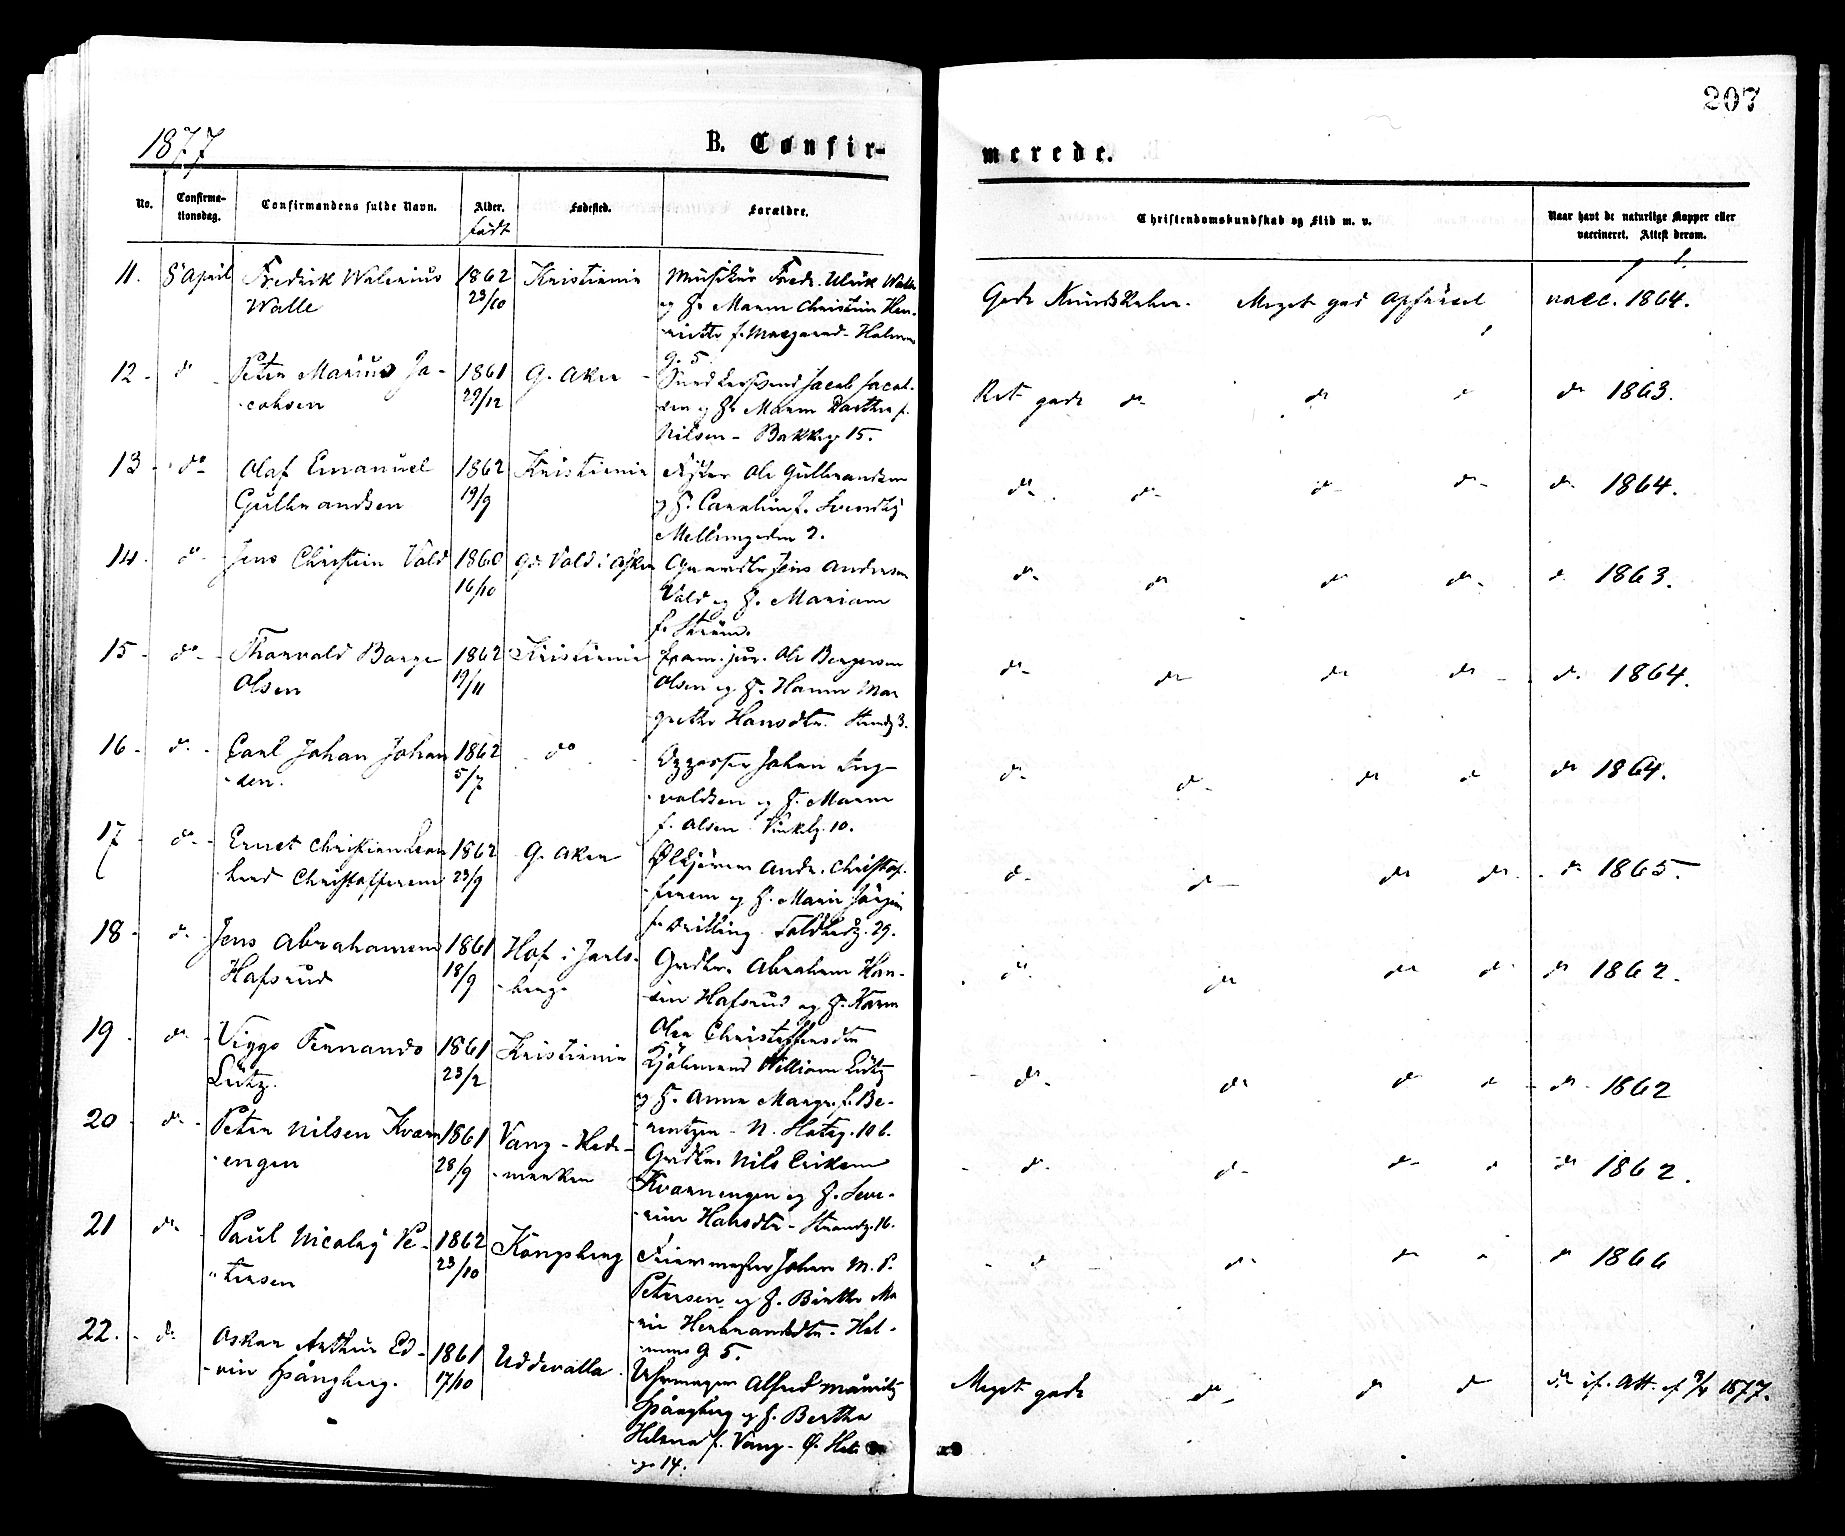 207
1877
B. Confir-
merede.
No.
Confirma-
tionsdag.
Confirmandens fulde Navn.
Alder.
født
Fødested.
Forældre.
Christendomskundskab og Flid m. v.
Naar havt de naturlige Kopper eller
vaccineret. Attest derom.
11. 8 April Fredrik Walerius 1862 Kristiania Musikus Fredr. Ulrik Walle
Walle 23/10 og H. Maren Christine Hen-
riette f.
g. 5
Gode Kundskaber. Meget god Opførsel vacc. 1864.
12 - do Peter Marius Ja- 1861 G. Aker Jacob Jacob-
cobsen 29/12 sen og H. Maren Dorthea f.
Nilsen - Bakkeg. 15.
Ret gode do do do do 1863.
13 - do Olaf Emanuel 1862 Kristiania Ole Gulbrandsen
Gulbrandsen 19/9 og H. Caroline f.
2.
do do do do do 1864.
14. do Jens Christian Vold 1860 Gd. Vold i Asker Jens Andersen
16/10 Vold og H. Mariam
f. Strøm.
do do do do do 1863.
15 - do Thorvald Borge 1862 Kristiania Ole Bergersen
Olsen 19/11 Olsen og H. Hanna Mar
grethe Hansdtr. Strandg 3.
do do do do do 1864.
16 - do Carl Johan Johan 1862 do Opposser Johan Ing-
sen. 5/7 valdsen og H. Maren
f. Olsen Vinkelg. 10.
do do do do do 1864.
17 - do Ernst Christian Leon 1862 G. Aker Ølkjører Andr. Christof-
hard Christoffersen 23/9 fersen og H. Marie Jørgine
f. 29.
do do do do do 1865.
18 - do Jens Abrahamsen 1861 Hof i Jarls- Grdbr. Abraham Han-
Hafsrud 18/9 berg. sen Hafsrud og H. Karen
Olea Christoffersdtr
do do do do do 1862.
19 - do Viggo Fernando 1861 Kristiania William Lütz
Lütz. 23/2 og H. Anna Margr. f. Be-
rentzen - N. Slotsg. 10 b.
do do do do do 1862
20 - do Peter Nilsen Kvern 1861 Vang - Hede- Grdbr. Nils Eriksen
engen 28/9 marken Kvernengen og H. Seve-
rine Hansdtr - Strandg. 16.
do do do do do 1862.
21 do Paul Nicolay Pe- 1862 Kongsberg Feiermester Johan M. P.
tersen 23/10 Petersen og H. Birthe Ma
rie Herbrandsdtr. Hol-
mens g 5.
do do do do do 1866
22. - do Oskar Arthur Ed- 1861 Uddevalla Uhrmager Alfred Mauritz
vin Spångberg. 17/10 Spångberg og H. Bertha
Helena f. Vang - Ø. Slots
g. 14.
Meget gode do do do do if. Att. af 1877.